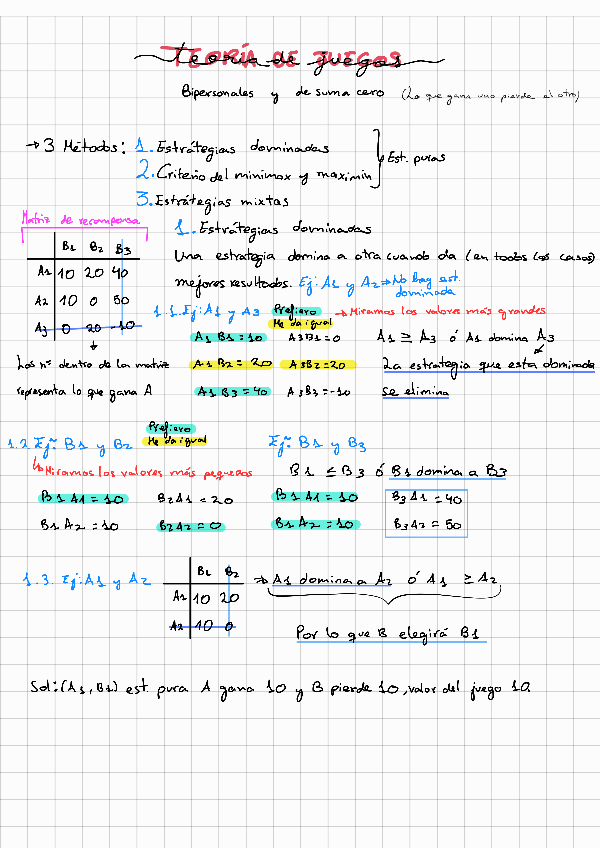 Teoría de juegos
Bipersonales y de suma cero (Lo que gana uno pierde el otro)
→ 3 Métodos: 1. Estrategias dominadas
2. Criterio del minimax y maximin
Est. puras
3. Estrategias mixtas
Matriz de recompensa
B1 B2 B3
A1 10 20 40
A2 10 0 50
A3 0 20 -10
Los nº dentro de la matriz
representa lo que gana A
1. Estrátegias dominadas
Una estrategia domina a otra cuando da (en todos los casos)
mejores resultados. Ej: A1 y A2 → No hay est.
dominada
1.1. Ej: A1 y A3 Prefiero → Miramos los valores más grandes
Me da igual
A1 B1 = 10 A3B1 = 0 A1 ≥ A3 ó A1 domina A3
A1 B2 = 20 A3B2 = 20 La estrategia que esta dominada
A1 B3 = 40 A3B3 = -10 se elimina
Prefiero
Me da igual
1.2 Ej: B1 y B2 Ej: B1 y B3
↳ Miramos los valores más pequeños B1 ≤ B3 ó B1 domina a B3
B1 A1 = 10 B2A1 = 20 B1 A1 = 10 B3A1 = 40
B1 A2 = 10 B2A2 = 0 B1 A2 = 10 B3A2 = 50
1.3. Ej: A1 y A2
B1 B2
A1 10 20
A2 10 0
⇒ A1 domina a A2 ó A1 ≥ A2
Por lo que B elegirá B1
Sol: (A1, B1) est. pura A gana 10 y B pierde 10, valor del juego 10.